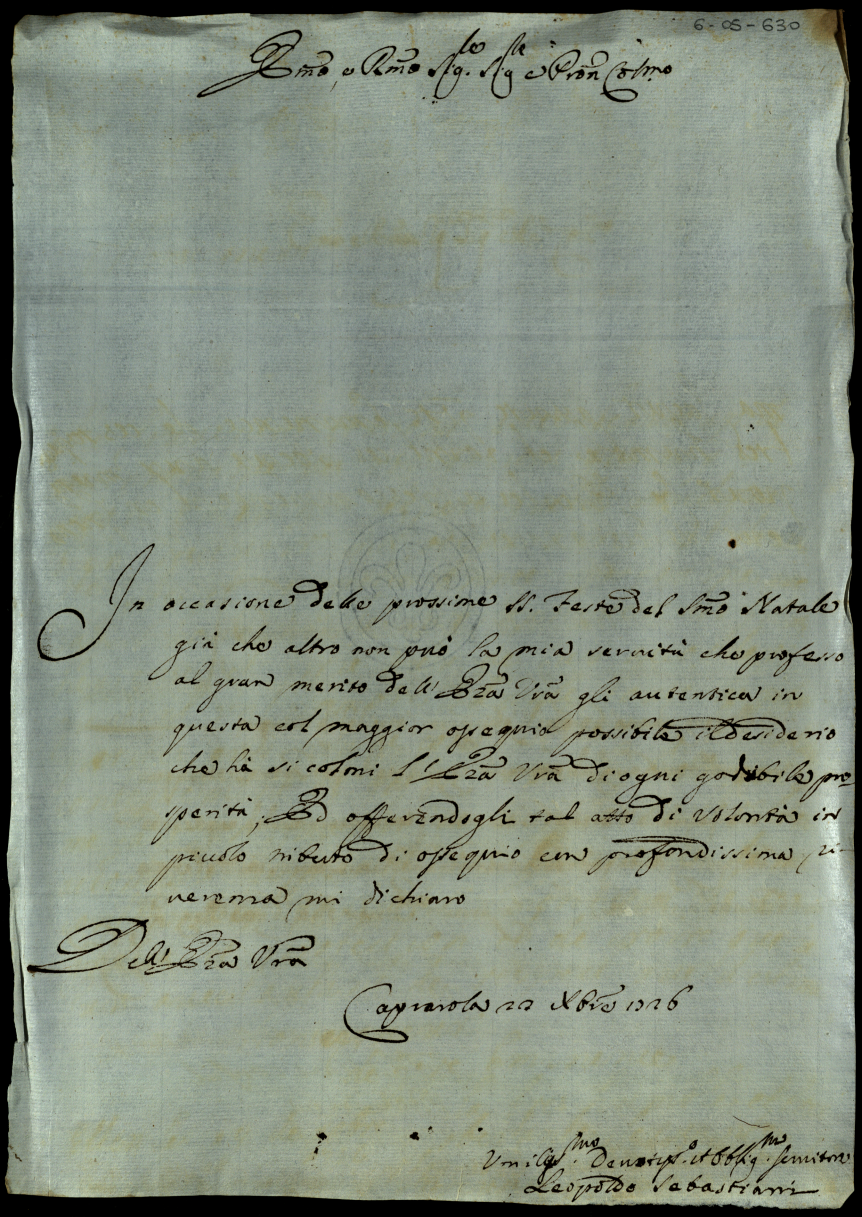 6-05-630
Emo, e Rmo Sig.re Sig.re e Pron Colmo
In occasione delle prossime SS. Feste del Smo Natale
già che altro non può la mia servitù che professo
al gran merito dell' Eza Vra gli autentica in
questa col maggior ossequio possibile il desiderio
che hà si colmi l' Eza Vra di ogni godibile pro-
sperità, Ed offerendogli tal atto di volontà in
piccolo tributo di ossequio con profondissima ri-
verenza mi dichiaro
Dell' Eza Vra
Caprarola 22 Xbre 1726
Umiliss.mo Devotiss.o et Obblig.mo Servitore
Leopoldo Sebastiani